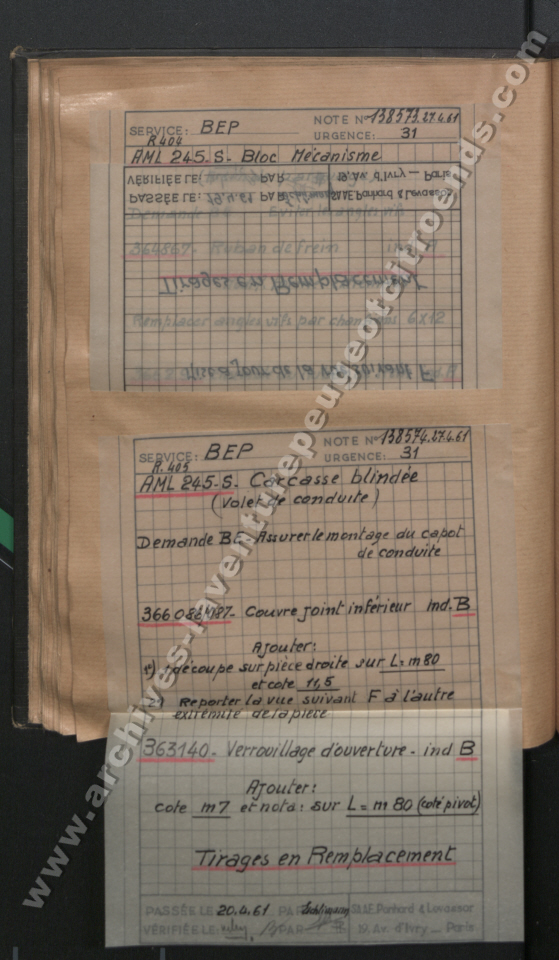 NOTE N° 138573.27.4.61
SERVICE: BEP URGENCE: 31
R404
AML 245-S- Bloc Mécanisme
VÉRIFIÉE LE PAR 19, Av. d'Ivry — Paris
PASSÉE LE: 29.4.61 PAR SAAE Panhard & Levassor
364867- Ruban de frein ind A
Tirages en Remplacement
Remplacer angles vifs par chanfreins 6x12
Mise à jour de la vue suivant F
NOTE N° 138574.27.4.61
SERVICE: BEP URGENCE: 31
R.405
AML 245-S- Carcasse blindée
(Volet de conduite)
Demande BE Assurer le montage du capot
de conduite
Couvre joint inférieur Ind. B
Ajouter:
1°) 1 découpe sur pièce droite sur L= m80
et cote 11,5
2) Reporter la vue suivant F à l'autre
extrémité de la pièce
363140- Verrouillage d'ouverture- ind B
Ajouter:
cote m7 et nota: sur L= m80 (coté pivot)
Tirages en Remplacement
PASSÉE LE 20.4.61 PAR SAAE Panhard & Levassor
VÉRIFIÉE LE: PAR 19, Av. d'Ivry — Paris
www.archives-laventurepeugeotcitroends.com